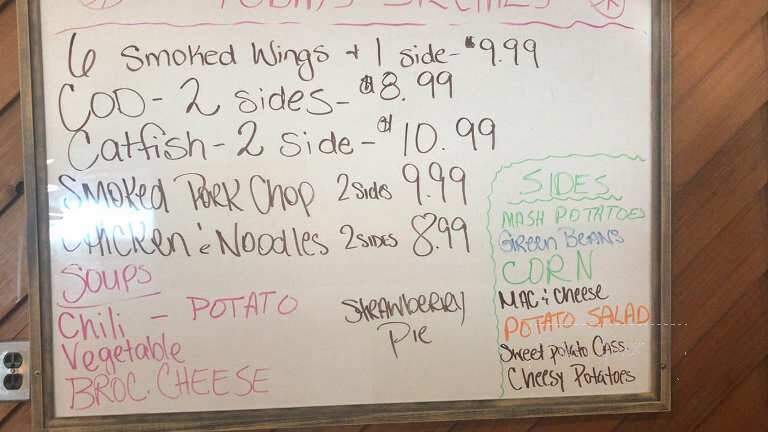 TODAY'S SPECIALS
6 Smoked Wings + 1 side - $9.99
COD - 2 sides - $8.99
Catfish - 2 side - $10.99
Smoked Pork Chop 2 Sides 9.99
Chicken & Noodles 2 SIDES 8.99
Soups
Chili - POTATO
Vegetable
BROC. CHEESE
STRAWBERRY
Pie
SIDES
MASH POTATOES
GREEN BEANS
CORN
MAC & Cheese
POTATO SALAD
Sweet potato Cass.
Cheesy Potatoes